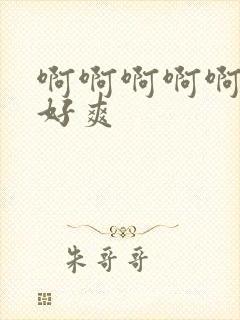 啊啊啊啊啊
好爽
朱哥哥